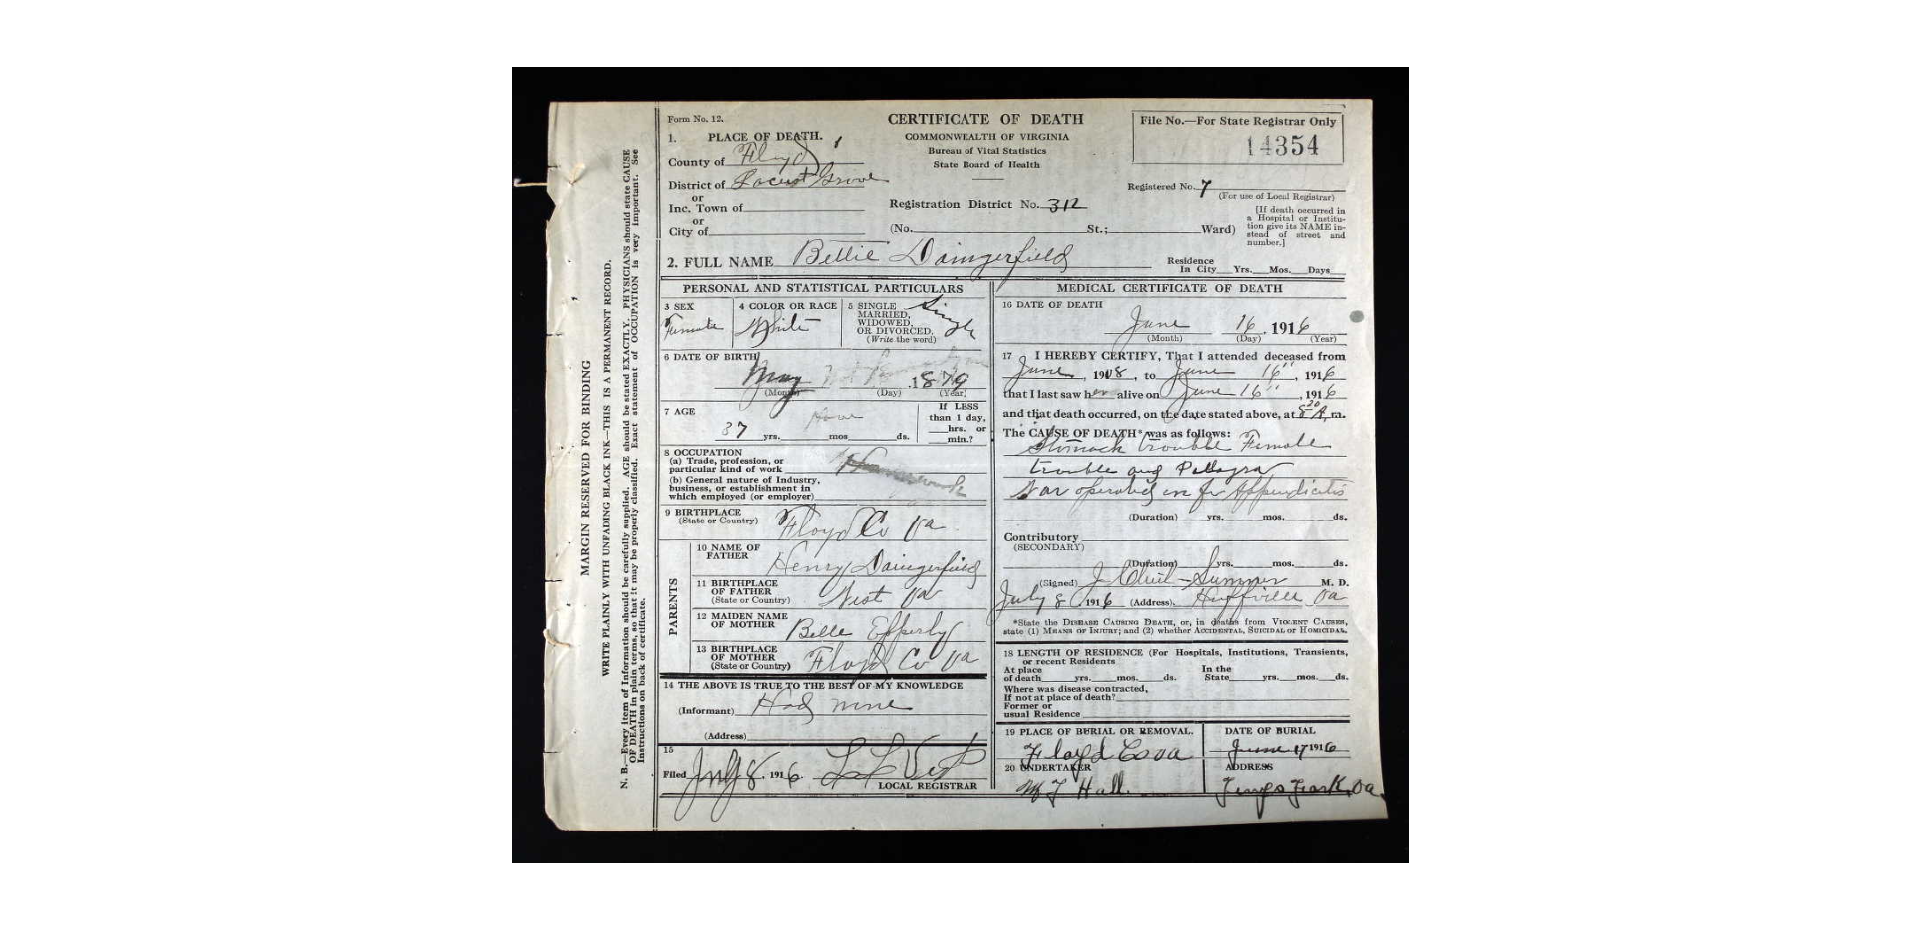 Form No. 12.
CERTIFICATE OF DEATH
COMMONWEALTH OF VIRGINIA
Bureau of Vital Statistics
State Board of Health
File No.—For State Registrar Only
14354
1. PLACE OF DEATH.
County of Floyd
District of Locust Grove
or
Inc. Town of
or
City of
Registration District No. 312
Registered No. 7
(For use of Local Registrar)
(No. St.; Ward)
[If death occurred in
a Hospital or Institu-
tion give its NAME in-
stead of street and
number.]
2. FULL NAME Bettie Daingerfield
Residence
In City Yrs. Mos. Days
PERSONAL AND STATISTICAL PARTICULARS
3 SEX
Female
4 COLOR OR RACE
White
5 SINGLE
MARRIED,
WIDOWED,
OR DIVORCED,
(Write the word)
Single
6 DATE OF BIRTH
May 1879
(Month) (Day) (Year)
7 AGE
37 yrs. mos. ds.
If LESS
than 1 day,
hrs. or
min.?
8 OCCUPATION
(a) Trade, profession, or
particular kind of work
(b) General nature of Industry,
business, or establishment in
which employed (or employer)
9 BIRTHPLACE
(State or Country)
Floyd Co Va
PARENTS
10 NAME OF
FATHER
Henry Daingerfield
11 BIRTHPLACE
OF FATHER
(State or Country)
West Va
12 MAIDEN NAME
OF MOTHER
Belle Epperly
13 BIRTHPLACE
OF MOTHER
(State or Country)
Floyd Co Va
14 THE ABOVE IS TRUE TO THE BEST OF MY KNOWLEDGE
(Informant) Had none
(Address)
15
Filed July 8, 1916.
LOCAL REGISTRAR
MEDICAL CERTIFICATE OF DEATH
16 DATE OF DEATH
June 16, 1916
(Month) (Day) (Year)
17 I HEREBY CERTIFY, That I attended deceased from
June, 1908, to June 16", 1916
that I last saw her alive on June 16", 1916
and that death occurred, on the date stated above, at 8 20 A. m.
The CAUSE OF DEATH* was as follows:
Stomach trouble Female
trouble and Pellagra
War operated on for Appendicitis
(Duration) yrs. mos. ds.
Contributory
(SECONDARY)
(Duration) yrs. mos. ds.
(Signed) Sumner M. D.
July 8, 1916 (Address) Huffville Va
*State the DISEASE CAUSING DEATH, or, in deaths from VIOLENT CAUSES,
state (1) MEANS OF INJURY; and (2) whether ACCIDENTAL, SUICIDAL OR HOMICIDAL.
18 LENGTH OF RESIDENCE (For Hospitals, Institutions, Transients,
or recent Residents
At place
of death yrs. mos. ds.
In the
State yrs. mos. ds.
Where was disease contracted,
If not at place of death?
Former or
usual Residence
19 PLACE OF BURIAL OR REMOVAL.
Floyd Co va
DATE OF BURIAL
June 17 1916
20 UNDERTAKER
Hall
ADDRESS
Va
MARGIN RESERVED FOR BINDING
WRITE PLAINLY WITH UNFADING BLACK INK—THIS IS A PERMANENT RECORD.
N. B.—Every item of Information should be carefully supplied. AGE should be stated EXACTLY. PHYSICIANS should state CAUSE
OF DEATH in plain terms, so that it may be properly classified. Exact statement of OCCUPATION is very important. See
Instructions on back of certificate.